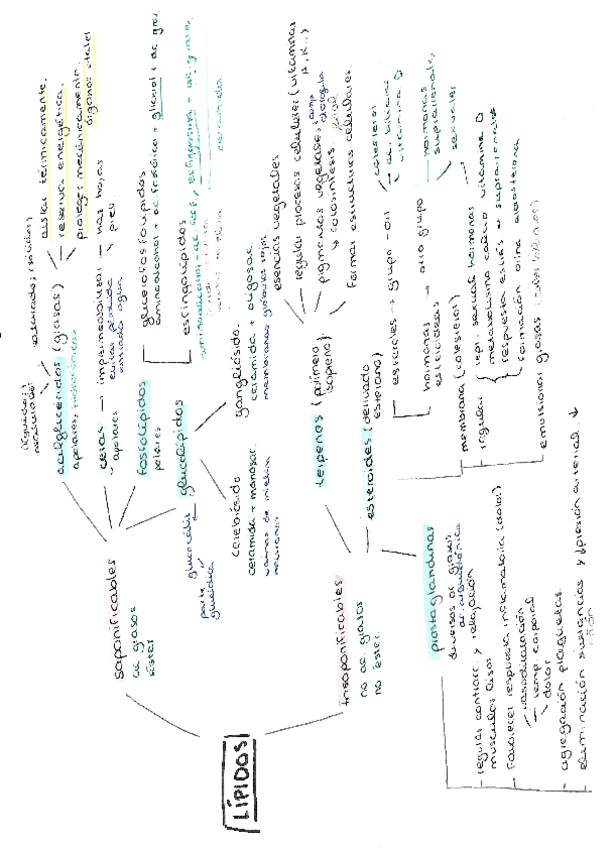 LÍPIDOS
saponificables
ac grasos
éster
(líquidos)
insaturados
saturados (sólidos)
acilglicéridos (grasas)
apolares, hidrofóbicos
aislar térmicamente.
reserva energética.
proteger mecánicamente
órganos vitales
ceras → impermeabilizar
apolares
evitar pérdida
entrada agua
haz hojas
piel
fosfolípidos
polares
glicerofosfolípidos
aminoalcohol + ac fosfórico + glicerol + ac gras.
esfingolípidos
ceramida
glucolípidos
glucocálix
parte
glucídica
cerebrósido
ceramida + monosac.
vainas de mielina
neuronas
gangliósido
ceramida + oligosac.
membranas glóbulos rojos
insaponificables
no ac grasos
no éster.
terpenos (polímero
isopreno)
esencias vegetales
regular procesos celulares (vitaminas
A, K..)
pigmentos vegetales, comp
clorofila
↳ fotosíntesis
formar estructuras celulares.
esteroides (derivado
esterano)
esteroles → grupo -OH
colesterol
ac. biliares
vitamina D
hormonas → otro grupo
esteroideas
hormonas
suprarrenales,
sexuales
membrana (colesterol)
regular
repr. sexual hormonas
metabolismo calcio vitamina D
respuesta estrés → suprarrenales
formación orina aldosterona
emulsionar grasas (sales biliares)
prostaglandinas
diversos ac grasos
ac. araquidónico
regular contracc y relajación
músculos lisos
Favorecer respuesta inflamatoria (calor)
vasodilatación
temp corporal
dolor
agregación plaquetas
eliminación sustancias y presión arterial ↓
riñón